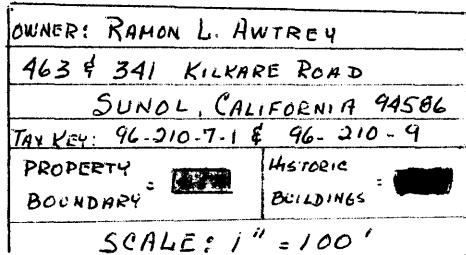 OWNER: RAMON L. AWTREY
463 & 341 KILKARE ROAD
SUNOL, CALIFORNIA 94586
TAX KEY: 96-210-7-1 & 96-210-9
PROPERTY BOUNDARY =
HISTORIC BUILDINGS =
SCALE: 1" = 100'